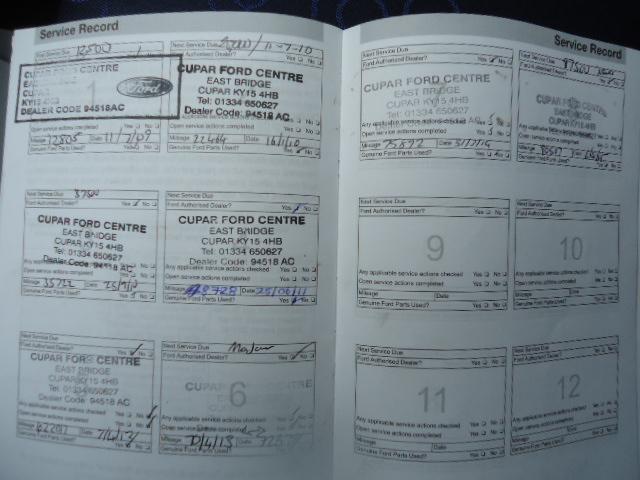 Service Record
Next Service Due 12500
CUPAR FORD CENTRE
KY15 4HB
DEALER CODE 94518AC
Ford
Open service actions completed Yes No
Mileage 12805 Date 11/7/09
Genuine Ford Parts Used? Yes No
Next Service Due
CUPAR FORD CENTRE
EAST BRIDGE
CUPAR KY15 4HB
Tel: 01334 650627
Dealer Code: 94518 AC
Open service actions completed Yes No
Mileage Date
Genuine Ford Parts Used? Yes No
Next Service Due 37500
Ford Authorised Dealer? Yes No
CUPAR FORD CENTRE
EAST BRIDGE
CUPAR KY15 4HB
Tel: 01334 650627
Dealer Code: 94518 AC
Any applicable service actions checked Yes No
Open service actions completed Yes No
Mileage 35722 Date
Genuine Ford Parts Used? Yes No
Next Service Due
Ford Authorised Dealer? Yes No
CUPAR FORD CENTRE
EAST BRIDGE
CUPAR KY15 4HB
Tel: 01334 650627
Dealer Code: 94518 AC
Any applicable service actions checked Yes No
Open service actions completed Yes No
Mileage Date
Genuine Ford Parts Used? Yes No
Next Service Due
Ford Authorised Dealer? Yes No
CUPAR FORD CENTRE
EAST BRIDGE
CUPAR KY15 4HB
Tel: 01334 650627
Dealer Code: 94518 AC
Any applicable service actions checked Yes No
Open service actions completed Yes No
Mileage Date
Genuine Ford Parts Used? Yes No
Next Service Due
Ford Authorised Dealer? Yes No
CUPAR
EAST BRIDGE
6
Any applicable service actions checked Yes No
Open service actions completed Yes No
Mileage
Genuine Ford Parts Used? Yes No
Service Record
Next Service Due
Ford Authorised Dealer? Yes No
CUPAR FORD CENTRE
EAST BRIDGE
CUPAR KY15 4HB
Tel: 01334 650627
Dealer Code: 94518 AC
Any applicable service actions checked Yes No
Open service actions completed Yes No
Mileage 75822 Date
Genuine Ford Parts Used? Yes No
Next Service Due 87500
Ford Authorised Dealer? Yes No
Any applicable service actions checked Yes No
Open service actions completed Yes No
Genuine Ford Parts Used? Yes No
Next Service Due
Ford Authorised Dealer? Yes No
9
Any applicable service actions checked Yes No
Open service actions completed Yes No
Mileage Date
Genuine Ford Parts Used? Yes No
Next Service Due
Ford Authorised Dealer? Yes No
10
Any applicable service actions checked Yes No
Open service actions completed Yes No
Mileage Date
Genuine Ford Parts Used? Yes No
Next Service Due
Ford Authorised Dealer? Yes No
11
Any applicable service actions checked Yes No
Open service actions completed Yes No
Mileage Date
Genuine Ford Parts Used? Yes No
Next Service Due
Ford Authorised Dealer? Yes No
12
Any applicable service actions checked Yes No
Open service actions completed Yes No
Mileage Date
Genuine Ford Parts Used? Yes No